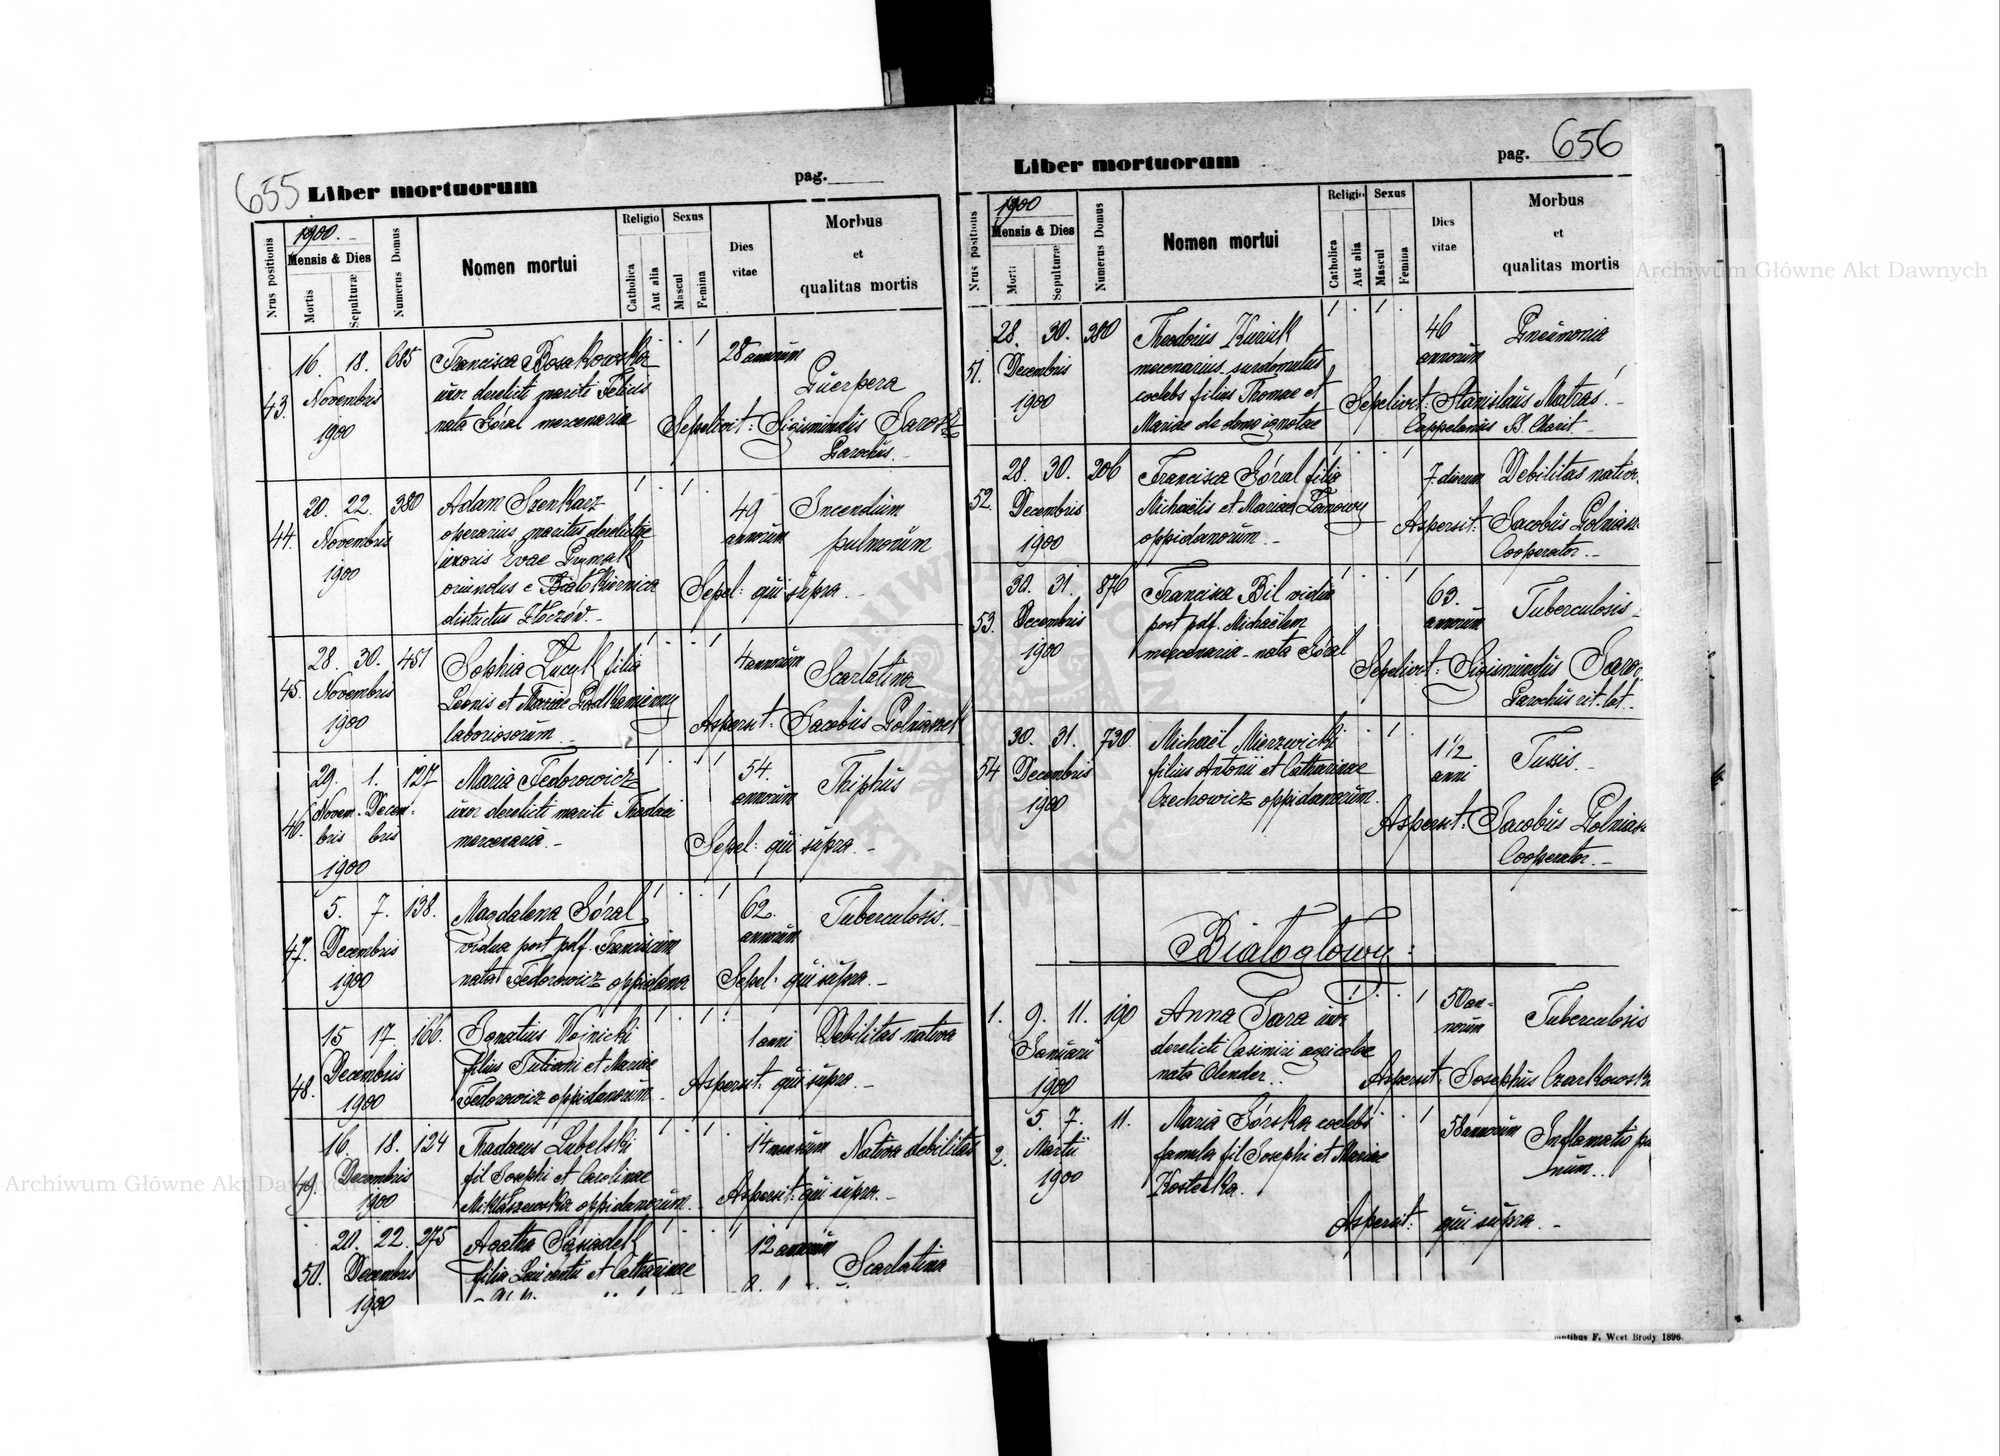 655 Liber mortuorum pag.
Nrus positionis
1900.
Mensis & Dies
Mortis
Sepulturæ
Numerus Domus
Nomen mortui
Religio
Catholica
Aut alia
Sexus
Mascul
Femina
Dies
vitae
Morbus
et
qualitas mortis
43. 16. 18. 685 Francisca Bosakowska 28 annorum
Novembris uxor derelicti mariti Felicis Puerpera
1900 nata Góral mercenaria Sepelivit: Sigismundus Jarosz
Parochus.
44. 20. 22. 380 Adam Szenkarz 49 Incendium
Novembris operarius maritus derelictae annorum pulmorum
1900 uxoris Evae Prymak
oriundus e Białokiernica Sepel: qui supra.
districtus Złoczów.
45. 28. 30. 451 Sophia Łucyk filia 4 annorum Scarlatina
Novembris Leonis et Mariae Podkamienny
1900 laboriosorum. Aspersit: Jacobus Polniaszek
46. 29. 1. 127 Maria Fedorowicz 54. Thiphus
Novem- Decem- uxor derelicti mariti Thadaei annorum
bris bris mercenaria. Sepel: qui supra.
1900
47. 5. 7. 138. Magdalena Góral 62. Tuberculosis.
Decembris vidua post pdf. Franciscum annorum
1900 nata Fedorowicz oppidana Sepel: qui supra.
48. 15 17. 166. Ignatius Wojnicki 1 anni Debilitas nativa
Decembris filius Juliani et Mariae
1900 Fedorowicz oppidanorum. Aspersit: qui supra.
49. 16. 18. 124 Thadaeus Lubelski 14 mensium Nativa debilitas
Decembris fil Josephi et Carolinae
1900 Miklaszewska oppidanorum. Aspersit: qui supra.
50. 20. 22. 275 Agatha 12 annorum Scarlatina
Decembris filia Laurentii et Catharinae
1900
Liber mortuorum pag. 656
Nrus positionis
1900
Mensis & Dies
Morti
Sepulturæ
Numerus Domus
Nomen mortui
Religio
Catholica
Aut alia
Sexus
Mascul
Femina
Dies
vitae
Morbus
et
qualitas mortis
51. 28. 30. 380 Theodorus Kuriak 46 Pneumonia
Decembris mercenarius surdomutus annorum
1900 coelebs filius Thomae et Sepelivit: Stanislaus Matras.
Mariae de domo ignotae Cappelanus B. Charit.
52. 28. 30. 206 Francisca Góral filia 7 dierum Debilitas nativa
Decembris Michaëlis et Mariae Aspersit: Jacobus Polniasz
1900 oppidanorum. Cooperator.
53. 30. 31. 876 Francisca Bil vidua 63. Tuberculosis
Decembris post pdf. Michaëlem annorum
1900 mercenaria nata Góral Sepelivit: Sigismundus Jaro
Parochus rit. lat.
54 30. 31. 730. Michaël Mierzwicki 1 1/2 Tussis.
Decembris filius Antonii et Catharinae anni
1900 Czechowicz oppidanorum. Aspersit: Jacobus Polniasz
Cooperator.
Białogłowy:
1. 9. 11. 190 Anna Fara uxor 50 an- Tuberculosis
Januarii derelicti Casimiri agricolae norum
1900 nata Olender.. Aspersit: Josephus Czarkowski
2. 5. 7. 11. Maria Górska coelebs 58 annorum Inflamatio pu
Martii famula fil Josephi et Mariae num..
1900 Kostecka.
Aspersit: qui supra.
F. West Brody 1896.
Archiwum Główne Akt Dawnych
Archiwum Główne Akt Dawnych